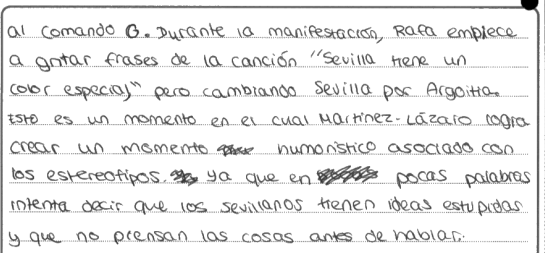 al comando G. Durante la manifestación, Rafa empiece
a gritar frases de la canción "Sevilla tiene un
color especial" pero cambiando Sevilla por Argoitia.
Esto es un momento en el cual Martínez-Lázaro logra
crear un momento humoristico asociado con
los estereotipos. ya que en pocas palabras
intenta decir que los sevillanos tienen ideas estupidas
y que no piensan las cosas antes de hablar.